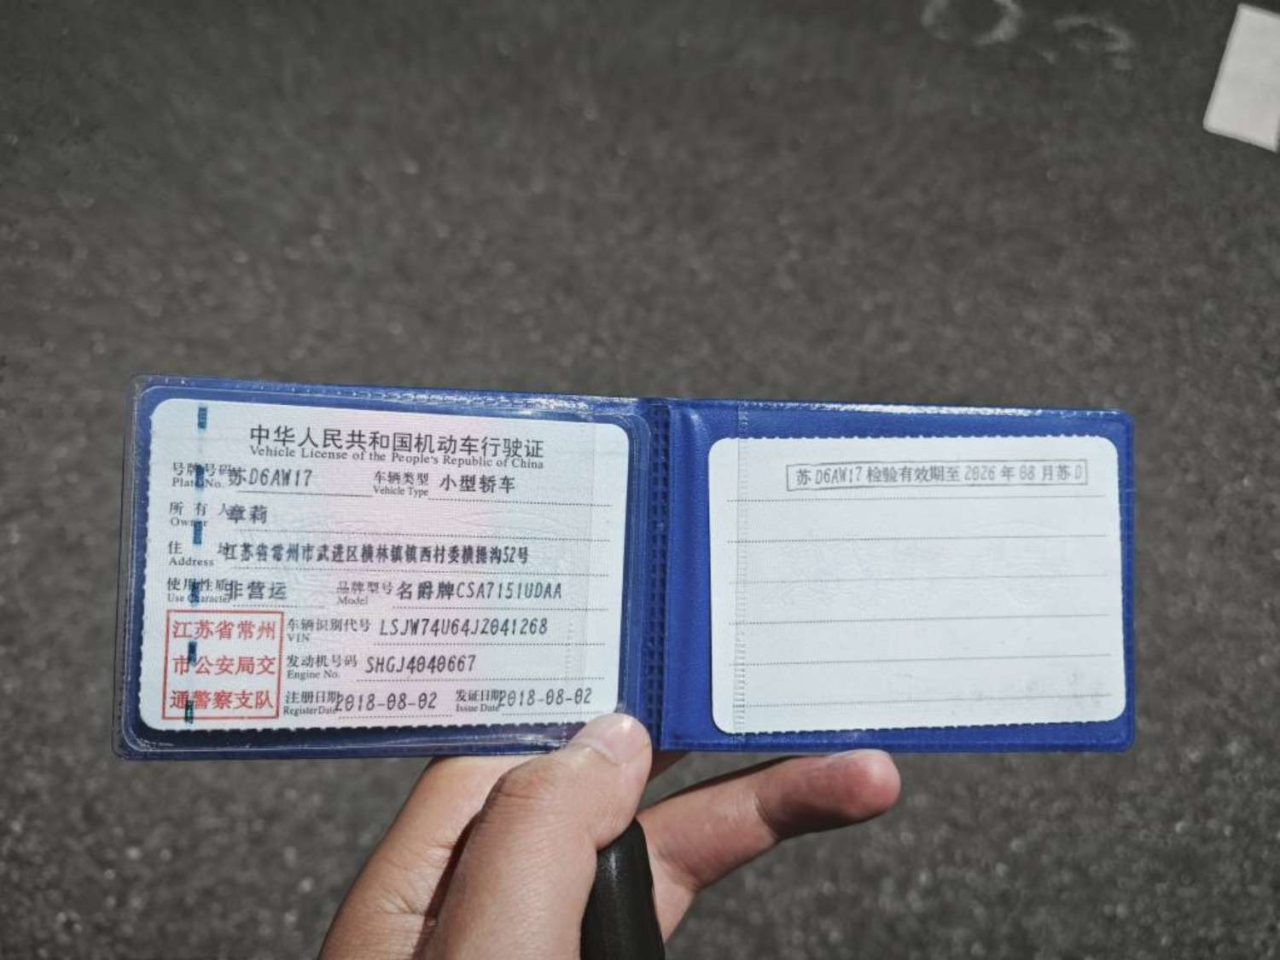 中华人民共和国机动车行驶证
Vehicle License of the People's Republic of China
号牌号码 苏D6AW17 车辆类型 小型轿车
Plate No. Vehicle Type
所有人 章莉
Owner
住址 江苏省常州市武进区横林镇镇西村委横 沟52号
Address
使用性质 非营运 品牌型号 名爵牌CSA7151UDAA
Use Character Model
江苏省常州
市公安局交
通警察支队
车辆识别代号 LSJW74U64J2041268
VIN
发动机号码 SHGJ4040667
Engine No.
注册日期 2018-08-02 发证日期 2018-08-02
Register Date Issue Date
苏D6AW17检验有效期至2026年08月苏D